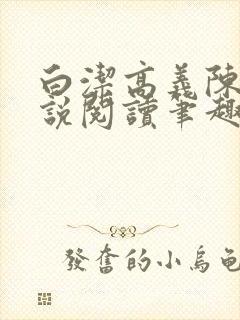 白潔高義陳
說閱讀筆趣
發奮的小烏龜